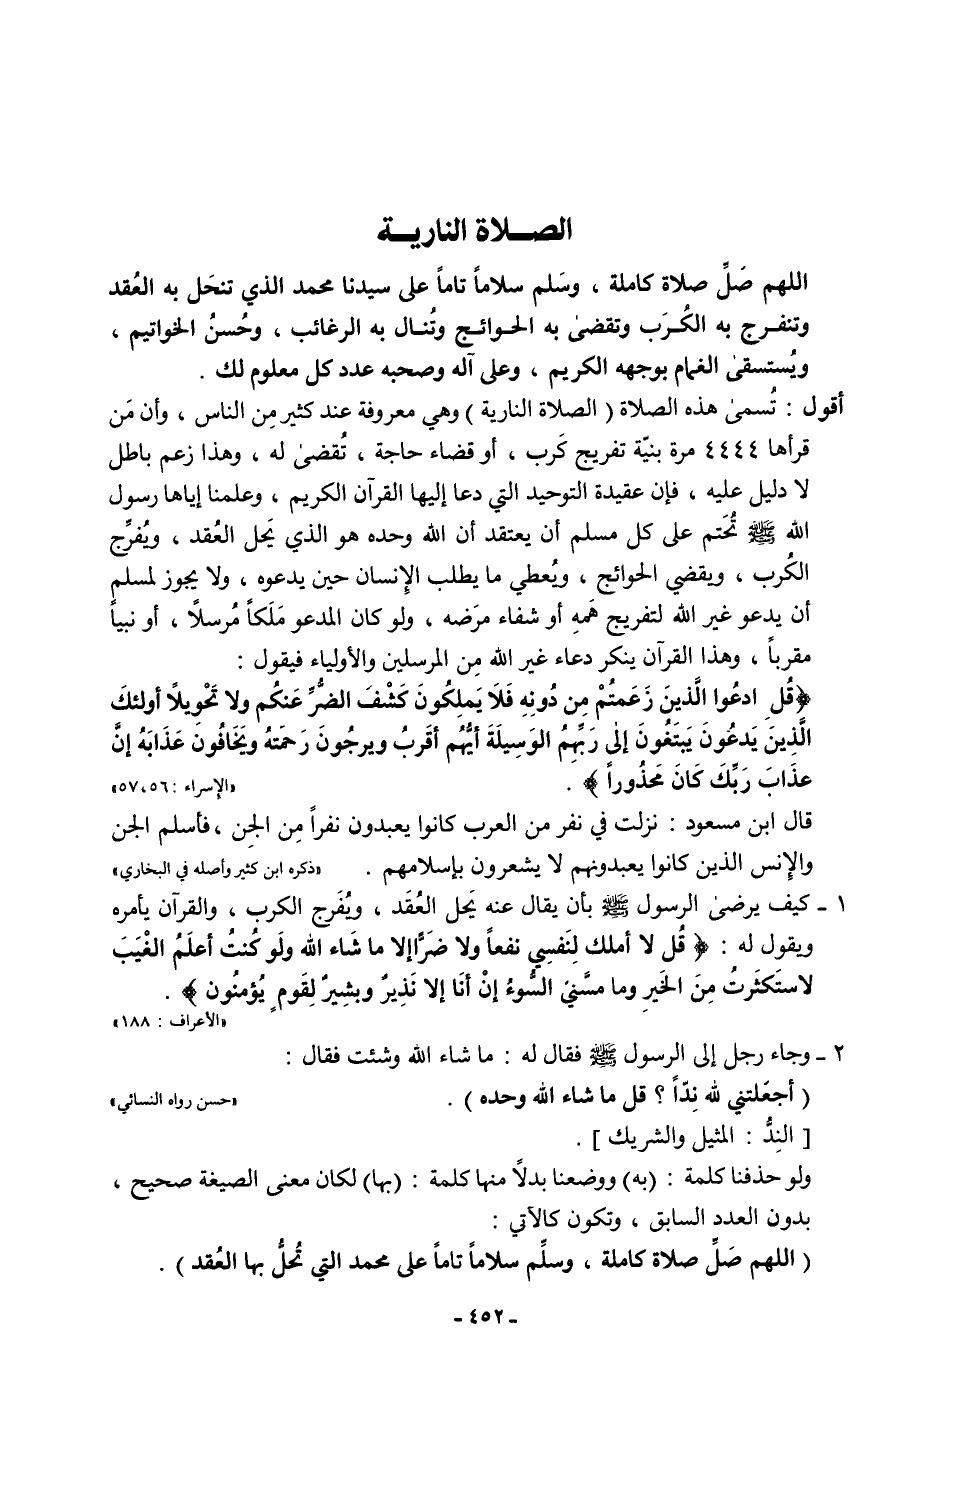 الصلاة النارية
اللهم صَلِّ صلاة كاملة ، وسَلم سلاماً تاماً على سيدنا محمد الذي تنحَل به العُقد
وتنفرج به الكُرَب وتقضىٰ به الحوائج وتُنال به الرغائب ، وحُسنُ الخواتيم ،
ويُستسقىٰ الغمام بوجهه الكريم ، وعلى آله وصحبه عدد كل معلوم لك .
أقول : تُسمىٰ هذه الصلاة ( الصلاة النارية ) وهي معروفة عند كثير مِن الناس ، وأن مَن
قرأها ٤٤٤٤ مرة بنيّة تفريج كَرب ، أو قضاء حاجة ، تُقضىٰ له ، وهذا زعم باطل
لا دليل عليه ، فإن عقيدة التوحيد التي دعا إليها القرآن الكريم ، وعلمنا إياها رسول
الله ﷺ تُحَتم على كل مسلم أن يعتقد أن الله وحده هو الذي يَحل العُقد ، ويُفرِّج
الكُرب ، ويقضي الحوائج ، ويُعطي ما يطلب الإنسان حين يدعوه ، ولا يجوز لمسلم
أن يدعو غير الله لتفريج هَمهِ أو شفاء مرَضه ، ولو كان المدعو مَلَكاً مُرسلًا ، أو نبياً
مقرباً ، وهذا القرآن ينكر دعاء غير الله مِن المرسلين والأولياء فيقول :
﴿قُلِ ادعُوا الَّذينَ زَعَمتُمْ مِن دُونِهِ فَلَا يَملِكُونَ كَشْفَ الضُّرِّ عَنكُم ولا تَحْويلًا أولئكَ
الَّذِينَ يَدعُونَ يَبتَغُونَ إلىٰ رَبِّهِمُ الوَسِيلَةَ أيُّهُم أقرَبُ ويرجُونَ رَحمَتهُ ويَخَافُونَ عَذابَهُ إنَّ
عذَابَ رَبِّكَ كَانَ مَحذُوراً ﴾ . «الإسراء : ٥٦، ٥٧»
قال ابن مسعود : نزلت في نفر من العرب كانوا يعبدون نفراً مِن الجِن ،فأسلم الجن
والإنس الذين كانوا يعبدونهم لا يشعرون بإسلامهم . «ذكره ابن كثير وأصله في البخاري»
١ ـ كيف يرضىٰ الرسول ﷺ بأن يقال عنه يحل العُقَد ، ويُفَرج الكرب ، والقرآن يأمره
ويقول له : ﴿ قُل لا أملك لِنَفسِي نفعاً ولا ضَرًّاإلا ما شَاء الله ولَو كُنتُ أعلَمُ الغَيَبَ
لاستَكثَرتُ مِنَ الخَيرِ وما مسَّنيَ السُّوءُ إنْ أنَا إلا نَذِيرٌ وبشِيرٌ لِقَومٍ يُؤمنُون ﴾ .
«الأعراف : ١٨٨»
٢ ـ وجاء رجل إلى الرسول ﷺ فقال له : ما شاء الله وشئت فقال :
( أجعَلتني لله نِدّاً ؟ قل ما شاء الله وحده ) . «حسن رواه النسائي»
[ النِدُّ : المثيل والشريك ] .
ولو حذفنا كلمة : (به) ووضعنا بدلاً منها كلمة : (بها) لكان معنى الصيغة صحيح ،
بدون العدد السابق ، وتكون كالآتي :
( اللهم صَلِّ صلاة كاملة ، وسلِّم سلاماً تاماً على محمد التي تُحلُّ بها العُقد ) .
ـ ٤٥٢ ـ